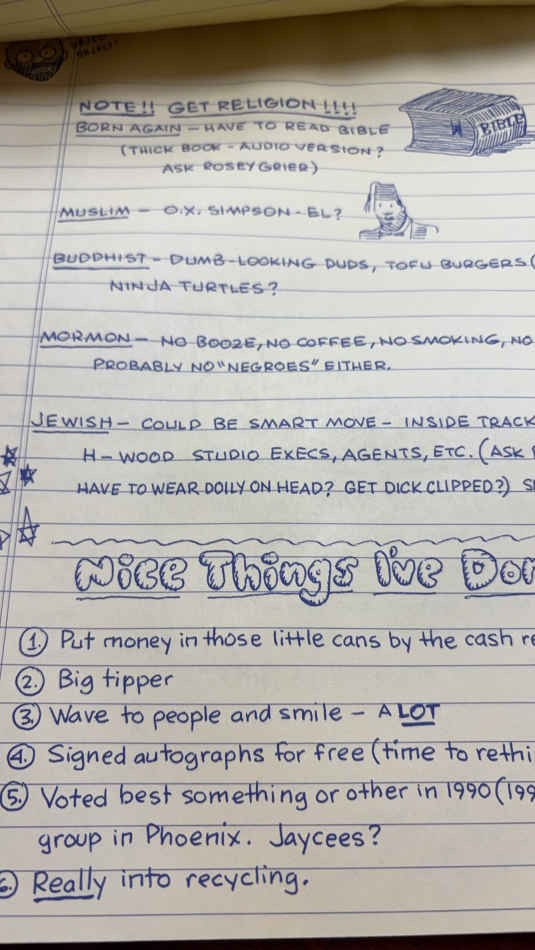 NOTE!! GET RELIGION!!!!
BORN AGAIN – HAVE TO READ BIBLE
(THICK BOOK – AUDIO VERSION?
ASK ROSEY GRIER)
BIBLE
MUSLIM – O.X. SIMPSON-EL?
BUDDHIST – DUMB-LOOKING DUDS, TOFU BURGERS (
NINJA TURTLES?
MORMON – NO BOOZE, NO COFFEE, NO SMOKING, NO
PROBABLY NO "NEGROES" EITHER.
JEWISH – COULD BE SMART MOVE – INSIDE TRACK
H-WOOD STUDIO EXECS, AGENTS, ETC. (ASK
HAVE TO WEAR DOILY ON HEAD? GET DICK CLIPPED?)
Nice Things I've Don
1. Put money in those little cans by the cash re
2. Big tipper
3. Wave to people and smile – A LOT
4. Signed autographs for free (time to rethi
5. Voted best something or other in 1990 (199
group in Phoenix. Jaycees?
6. Really into recycling.